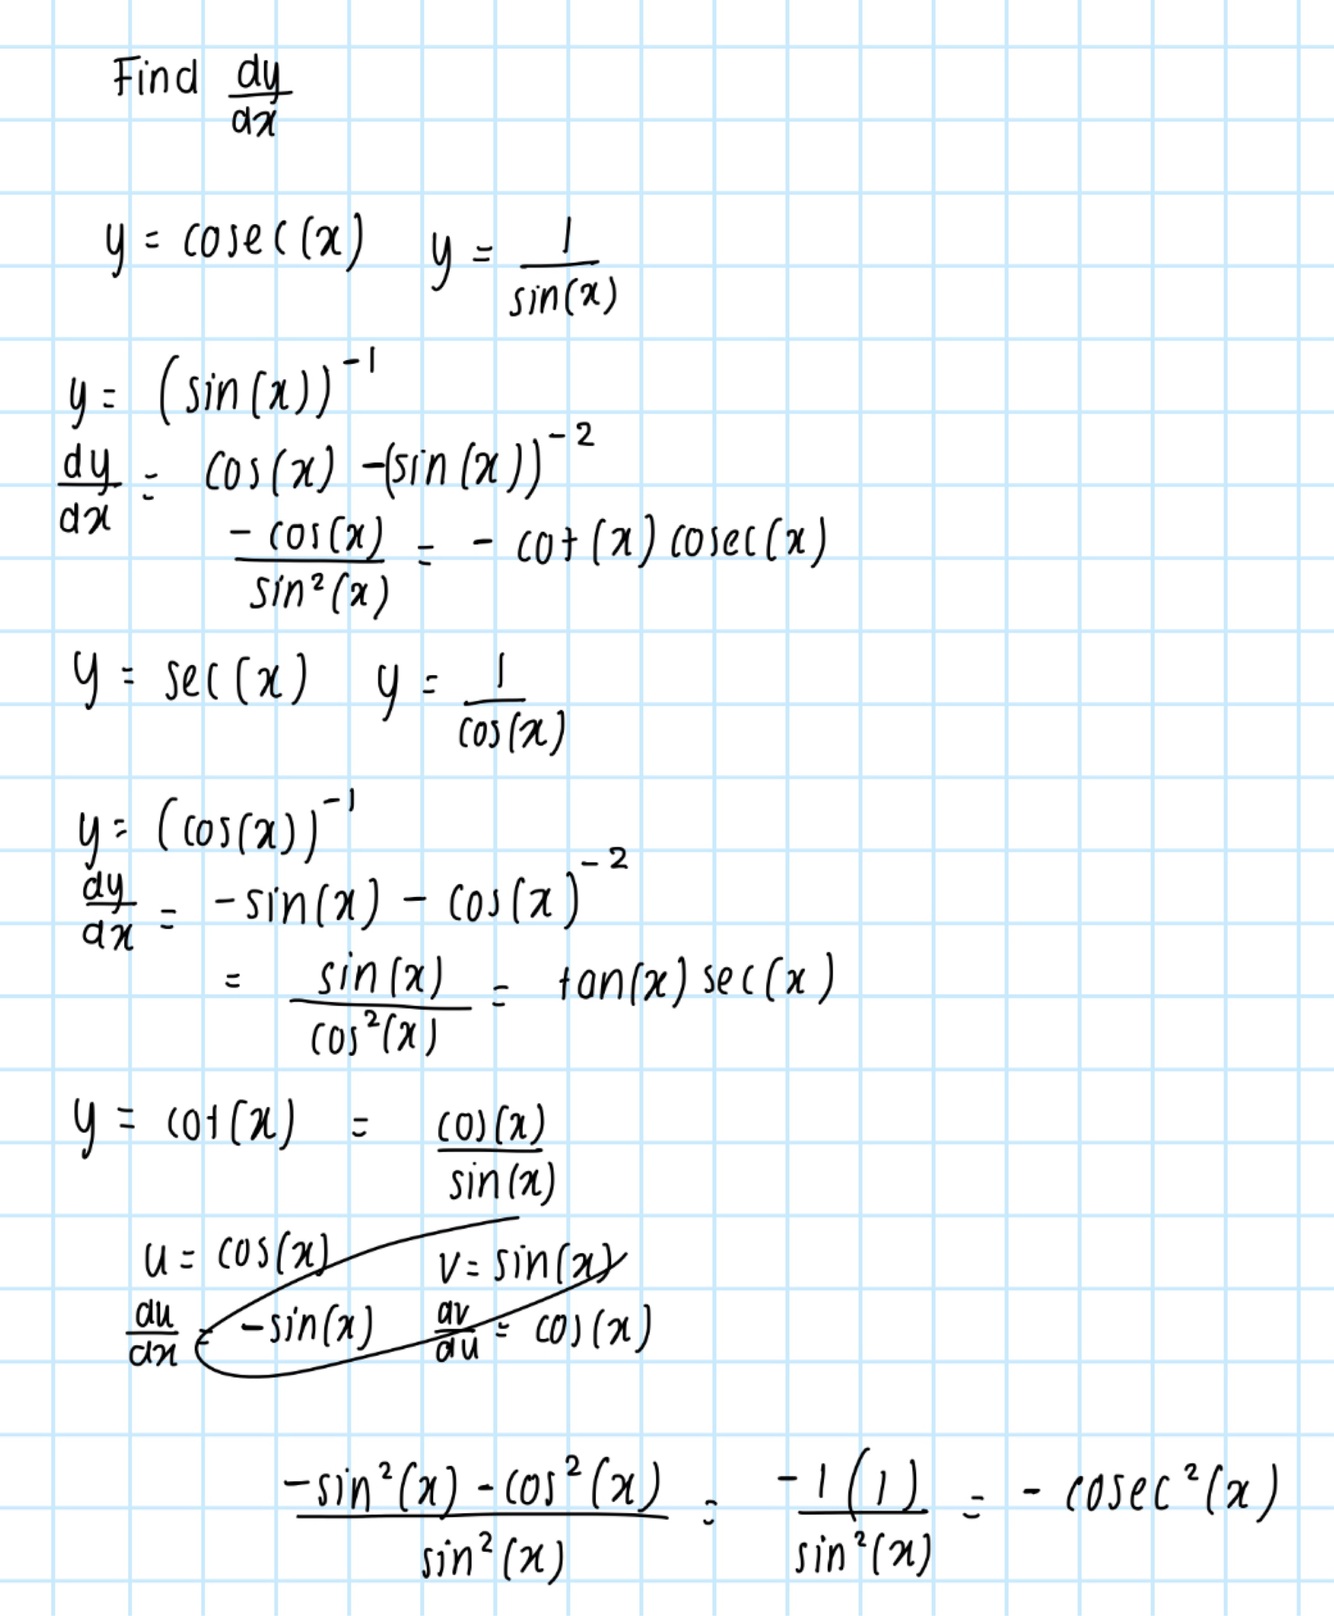 Find dy/dx
y = cosec(x) y = 1/sin(x)
y = (sin(x))⁻¹
dy/dx = cos(x) -(sin(x))⁻²
-cos(x)/sin²(x) = -cot(x)cosec(x)
y = sec(x) y = 1/cos(x)
y = (cos(x))⁻¹
dy/dx = -sin(x) - cos(x)⁻²
= sin(x)/cos²(x) = tan(x)sec(x)
y = cot(x) = cos(x)/sin(x)
u = cos(x) v = sin(x)
du/dx = -sin(x) dv/du = cos(x)
-sin²(x) - cos²(x)/sin²(x) = -1(1)/sin²(x) = -cosec²(x)